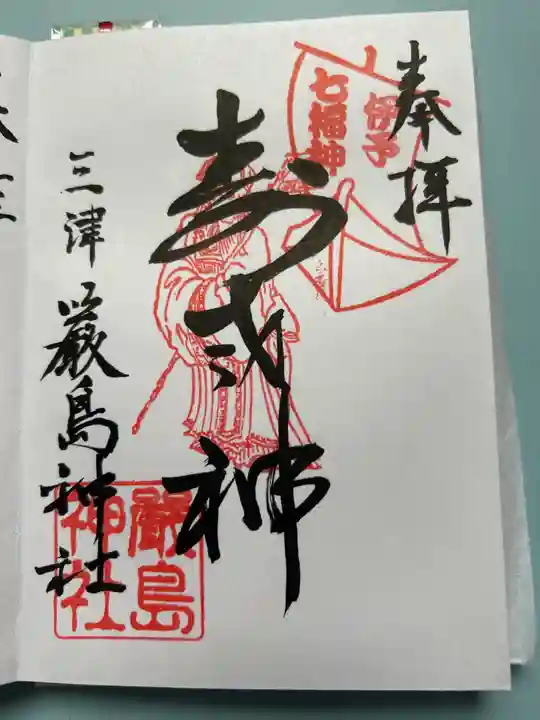 奉拝
伊予
七福神
寿老神
三津 厳島神社
厳島
神社